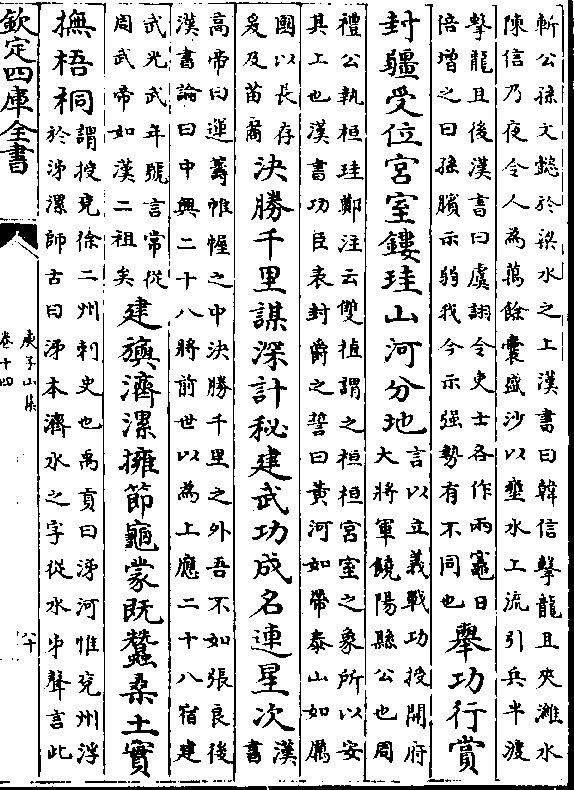 斬公孫文懿於梁水之上漢書曰韓信擊龍且夾濰水
陳信乃夜令人為萬餘囊盛沙以壅水上流引兵半渡
擊龍且後漢書曰虞詡令吏士各作兩竈日
倍增之曰孫臏示弱我今示强勢有不同也
舉功行賞
封疆受位宮室鏤珪山河分地
言以立義戰功授開府
大將軍饒陽縣公也周
禮公執桓珪鄭注云雙植謂之桓桓宮室之象所以安
其上也漢書功臣表封爵之誓曰黃河如帶泰山如厲
國以長存
爰及苗裔
決勝千里謀深計秘建武功成名連星次
漢
書
高帝曰運籌帷幄之中決勝千里之外吾不如張良後
漢書論曰中興二十八將前世以為上應二十八宿建
武光武年號言常從
周武帝如漢二祖矣
建旟濟漯擁節龜蒙既蠶桑土實
撫梧桐
謂授兖徐二州刺史也禹貢曰泲河惟兖州浮
於泲漯師古曰泲本濟水之字從水𠂔聲言此
欽定四庫全書
庾子山集
卷十四
八十